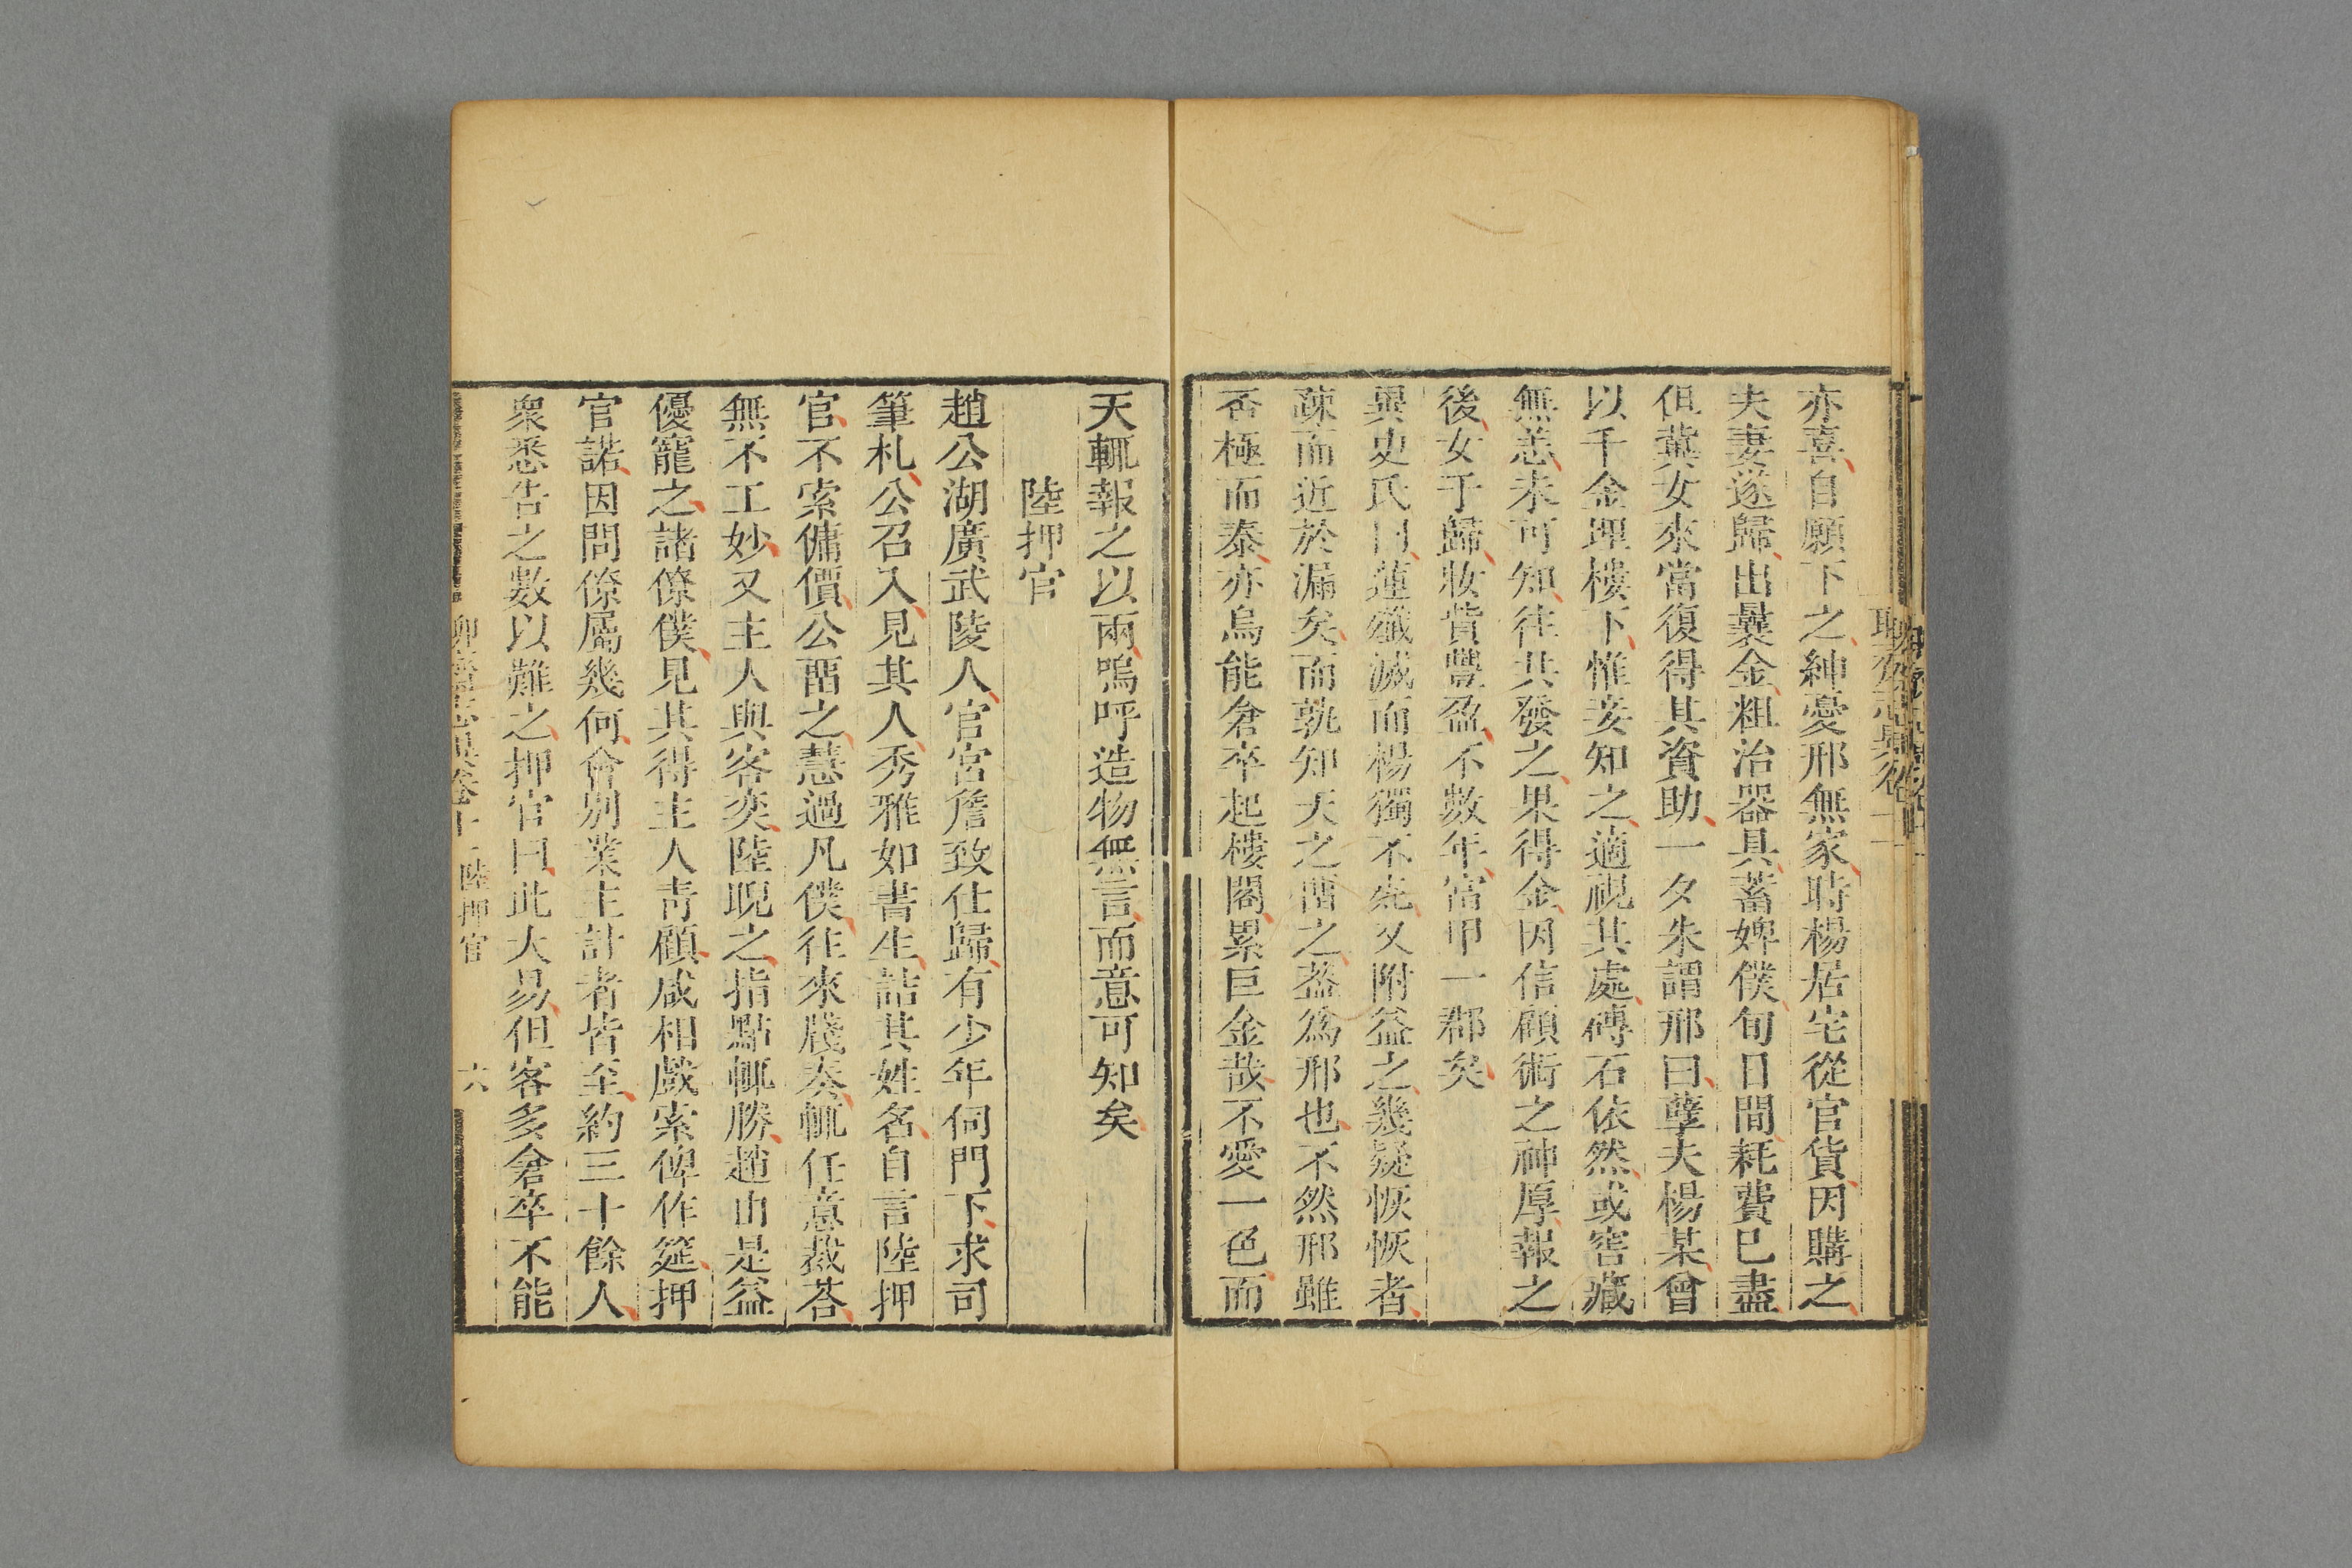 亦喜自願下之紳憂邢無家時楊居宅從官貨因購之
夫妻遂歸出曩金粗治器具蓄婢僕旬日間耗費已盡
但冀女來當復得其資助一夕朱謂邢曰孽夫楊某曾
以千金埋樓下惟妾知之適視其處磚石依然或窖藏
無恙未可知往共發之果得金因信顧術之神厚報之
後女于歸妝貲豐盈不數年富甲一郡矣
異史氏曰蓮殲滅而楊獨不死又附益之幾疑恢恢者
疎而近於漏矣而孰知天之畱之葢為邢也不然邢雖
否極而泰亦烏能倉卒起樓閣累巨金哉不愛一色而
天輒報之以兩嗚呼造物無言而意可知矣
陸押官
趙公湖廣武陵人官宮詹致仕歸有少年伺門下求司
筆札公召入見其人秀雅如書生詰其姓名自言陸押
官不索傭價公畱之慧過凡僕往來牋奏輒任意裁荅
無不工妙又主人與客奕陸睨之指點輒勝趙由是益
優寵之諸僚僕見其得主人靑顧咸相戲索俾作筵押
官諾因問僚屬幾何會別業主計者皆至約三十餘人
衆悉告之數以難之押官曰此大易但客多倉卒不能
陸押官
六